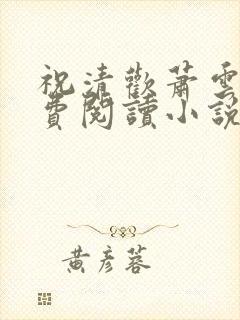 祝清歡蕭雲
費閱讀小說
黃彥蓉